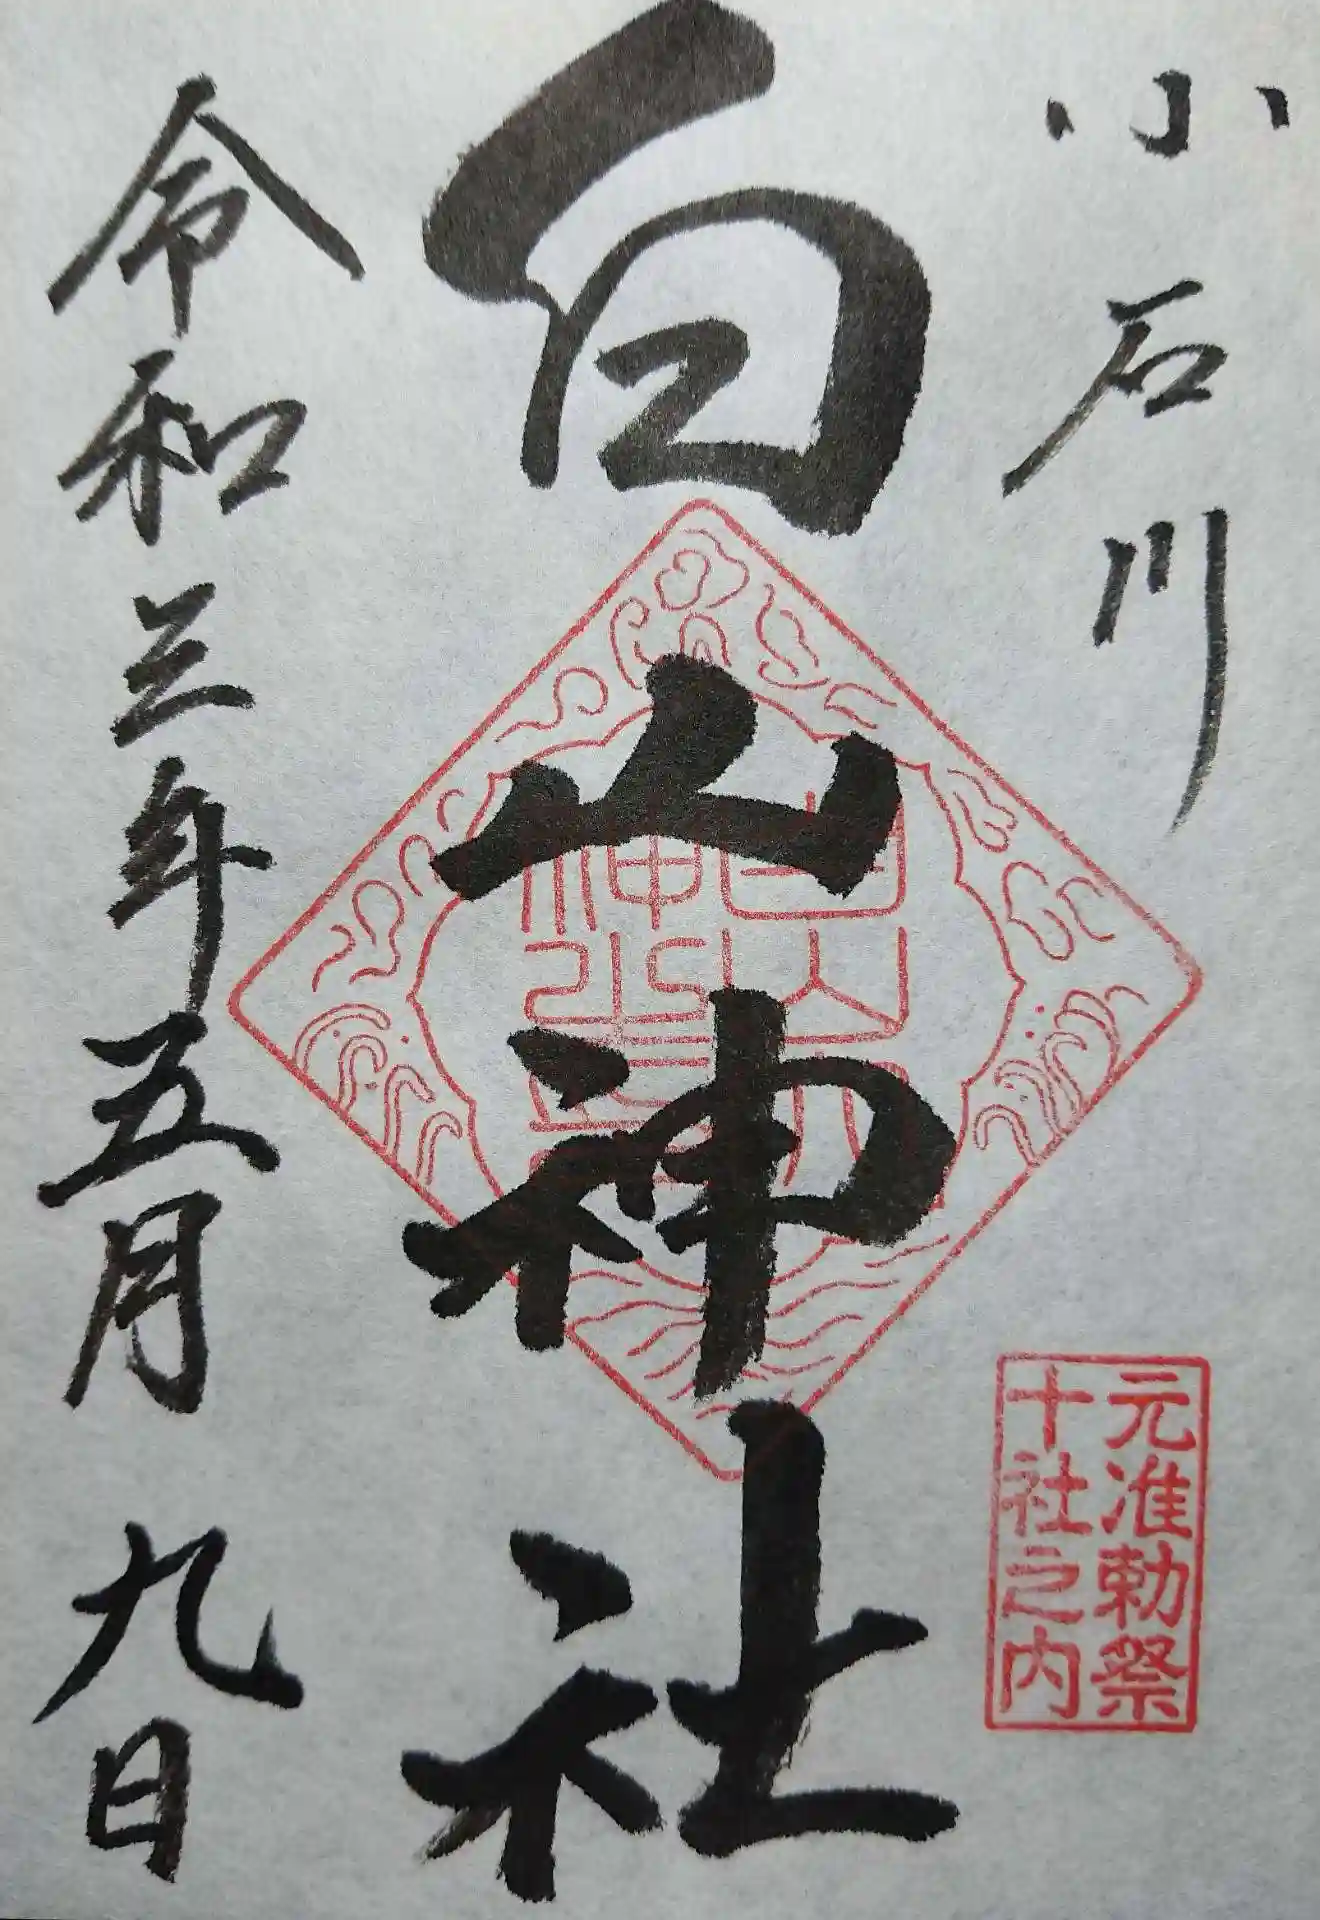 小石川
元准勅祭
十社之内
白山神社
令和三年五月九日